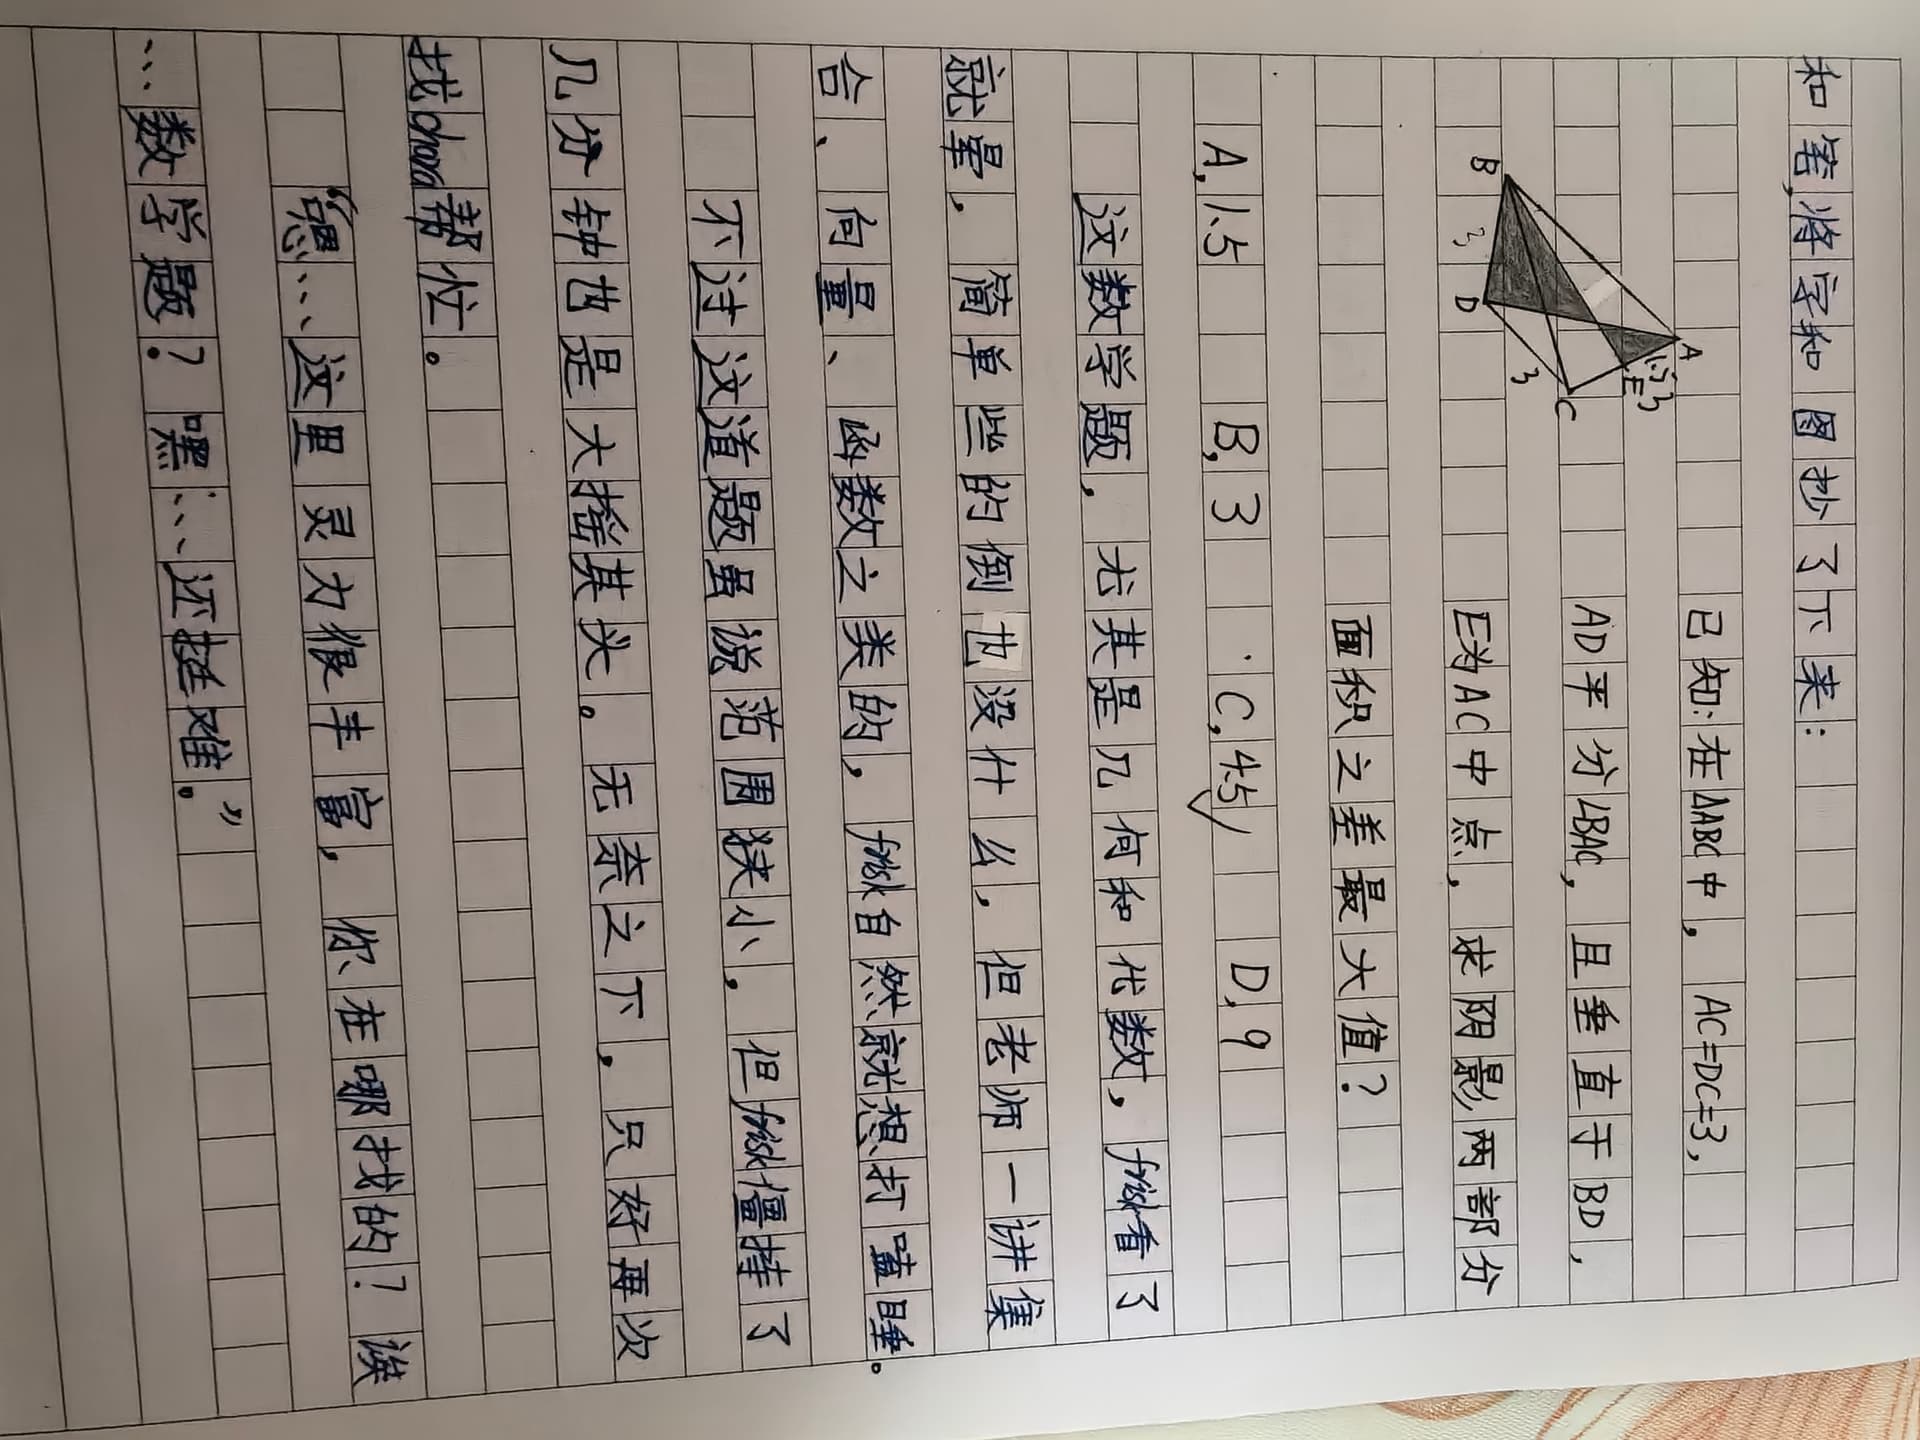 和笔，将字和图抄了下来：
已知：在△ABC中，AC=DC=3，
AD平分∠BAC，且垂直于BD，
E为AC中点，求阴影两部分
面积之差最大值？
A
B
C
D
E
3
3
1.5
3
A.1.5 B.3 C.4.5✓ D.9
这数学题，尤其是几何和代数，frisk看了
就晕，简单些的倒也没什么，但老师一讲集
合、向量、函数之类的，frisk自然就想打瞌睡。
不过这道题虽说范围狭小，但frisk僵持了
几分钟也是大摇其头。无奈之下，只好再次
找chara帮忙。
“嘿…这里灵力很丰富，你在哪找的？诶
…数学题？嘿…还挺难。”